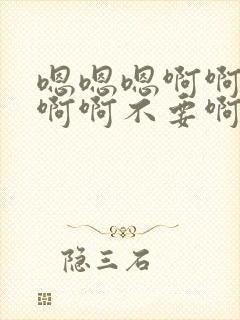 嗯嗯嗯啊啊
啊啊不要啊
隐三石